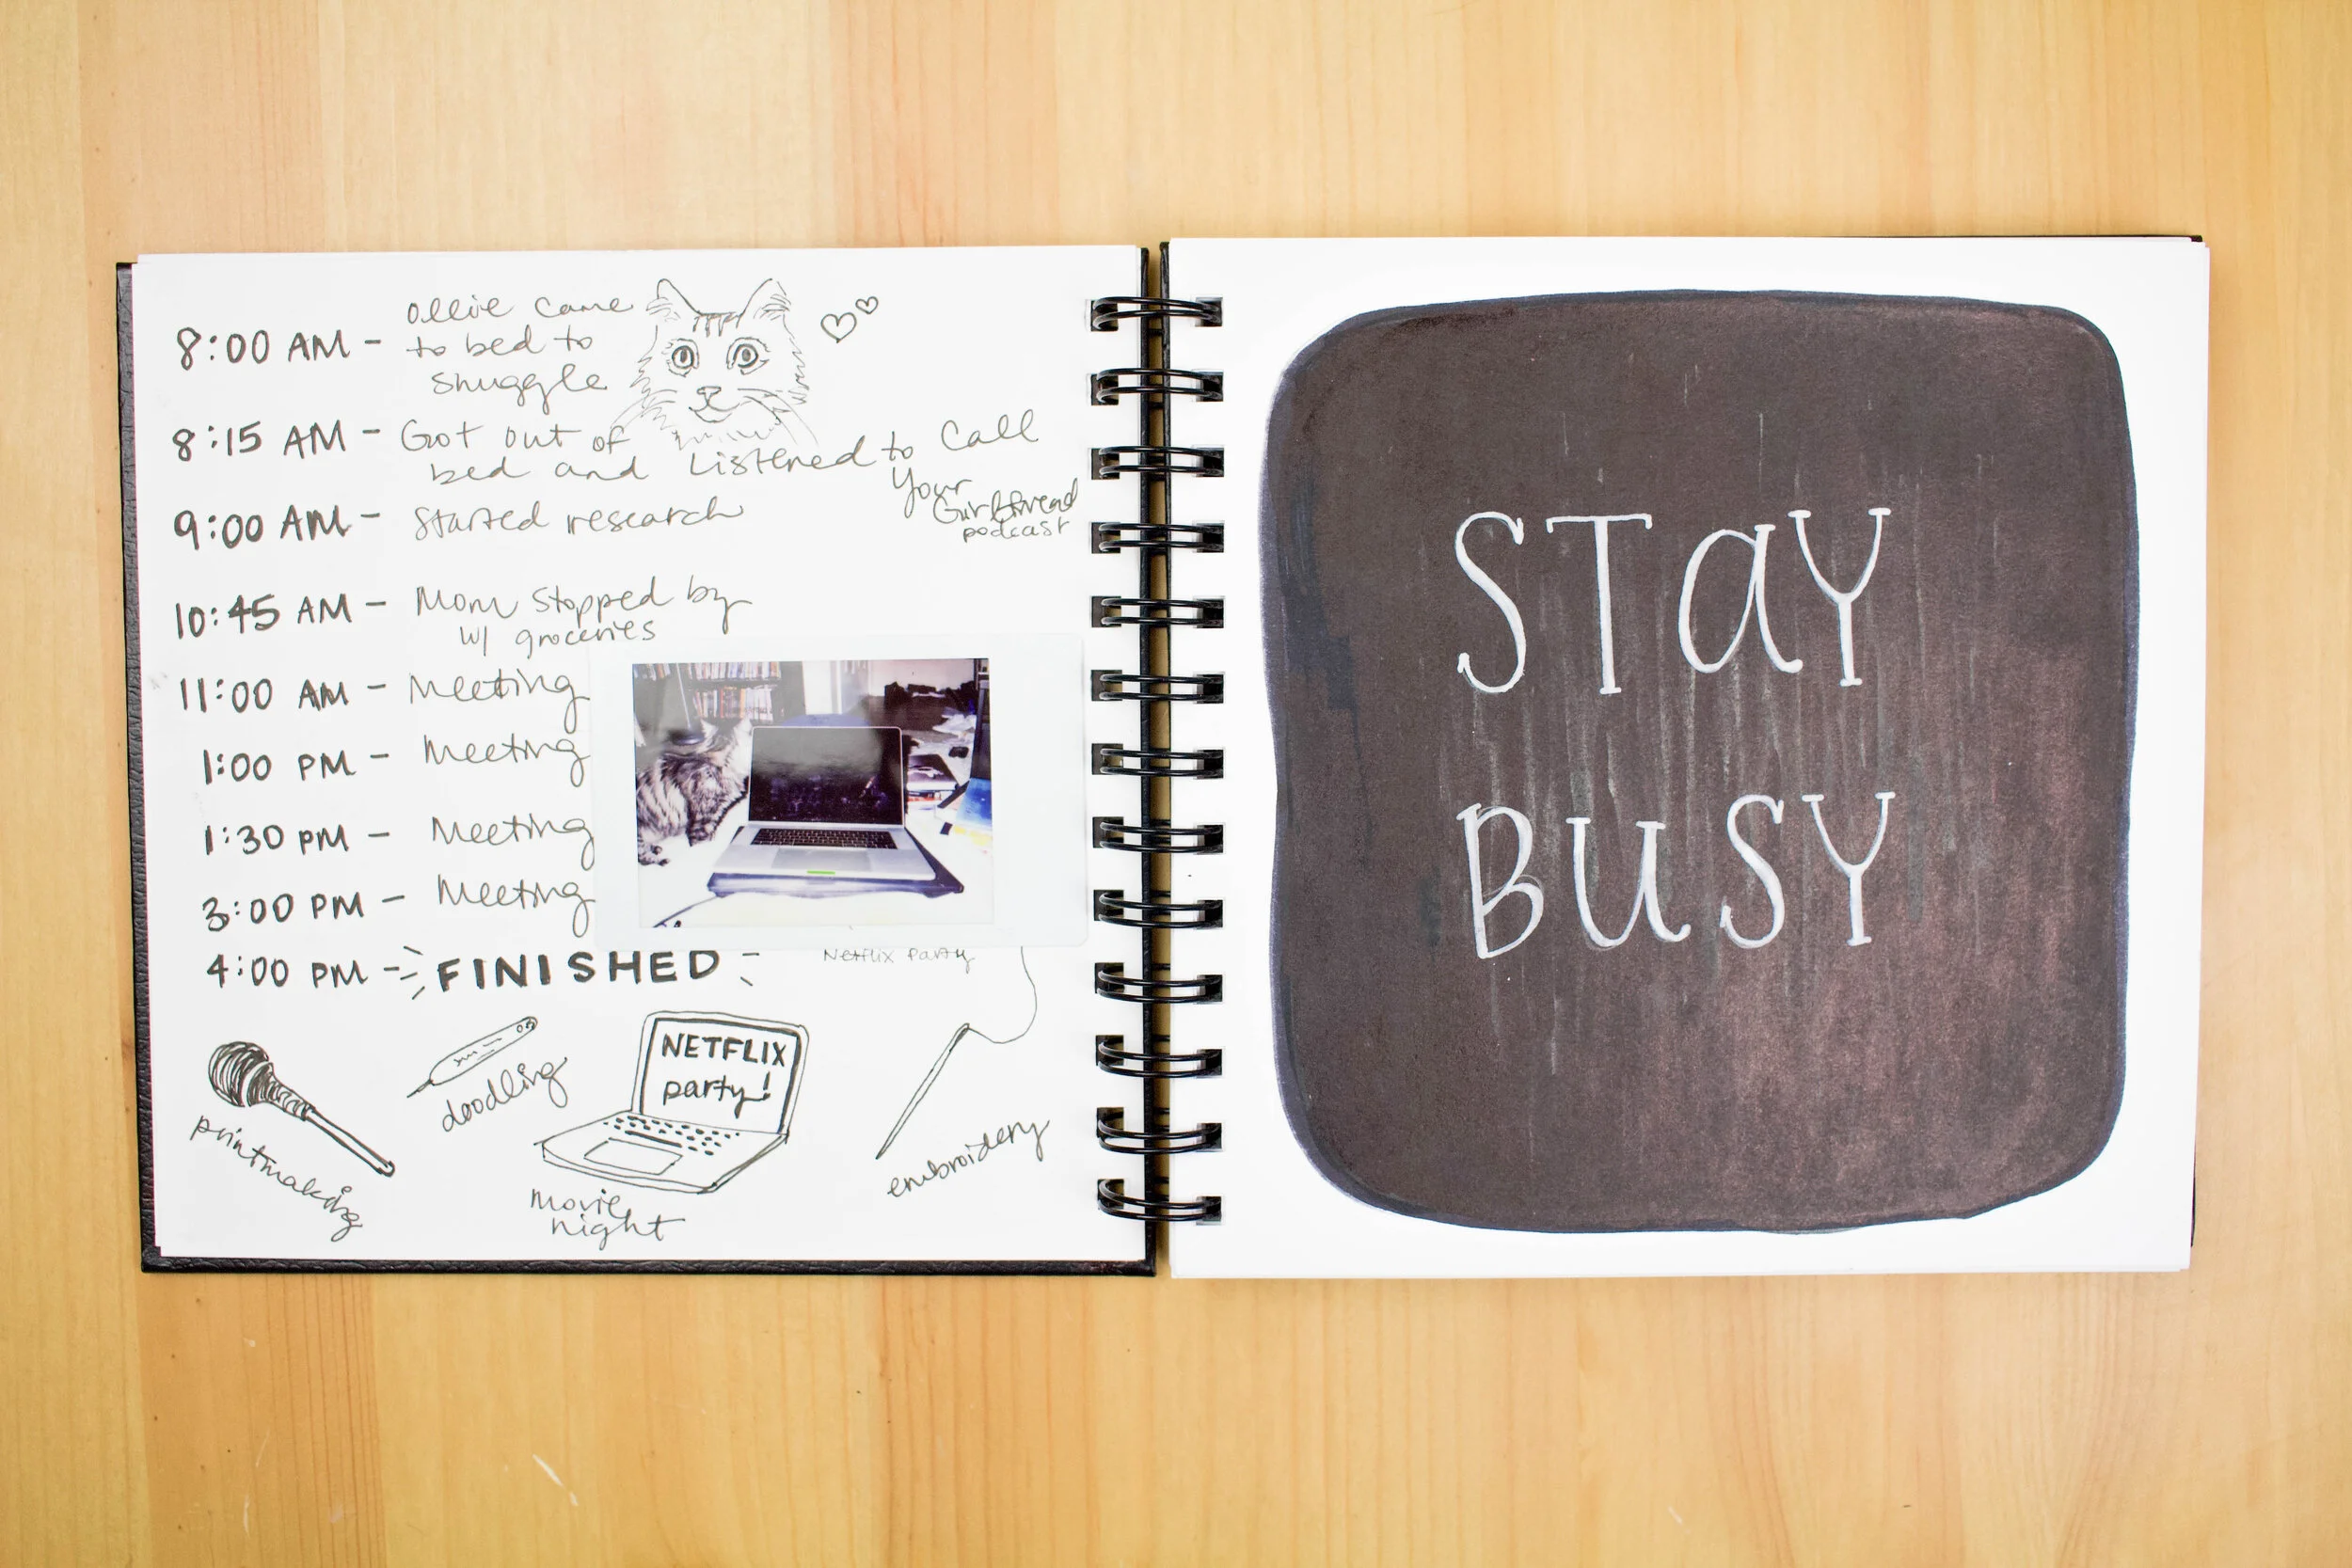 8:00 AM - Ollie came
to bed to
snuggle
8:15 AM - Got out of
bed and Listened to Call
Your
Girlfriend
podcast
9:00 AM - Started research
10:45 AM - Mom stopped by
w/ groceries
11:00 AM - Meeting
1:00 PM - Meeting
1:30 PM - Meeting
3:00 PM - Meeting
4:00 PM - FINISHED
Netflix Party
printmaking
doodling
NETFLIX
party!
movie
night
embroidery
STaY
BuSY